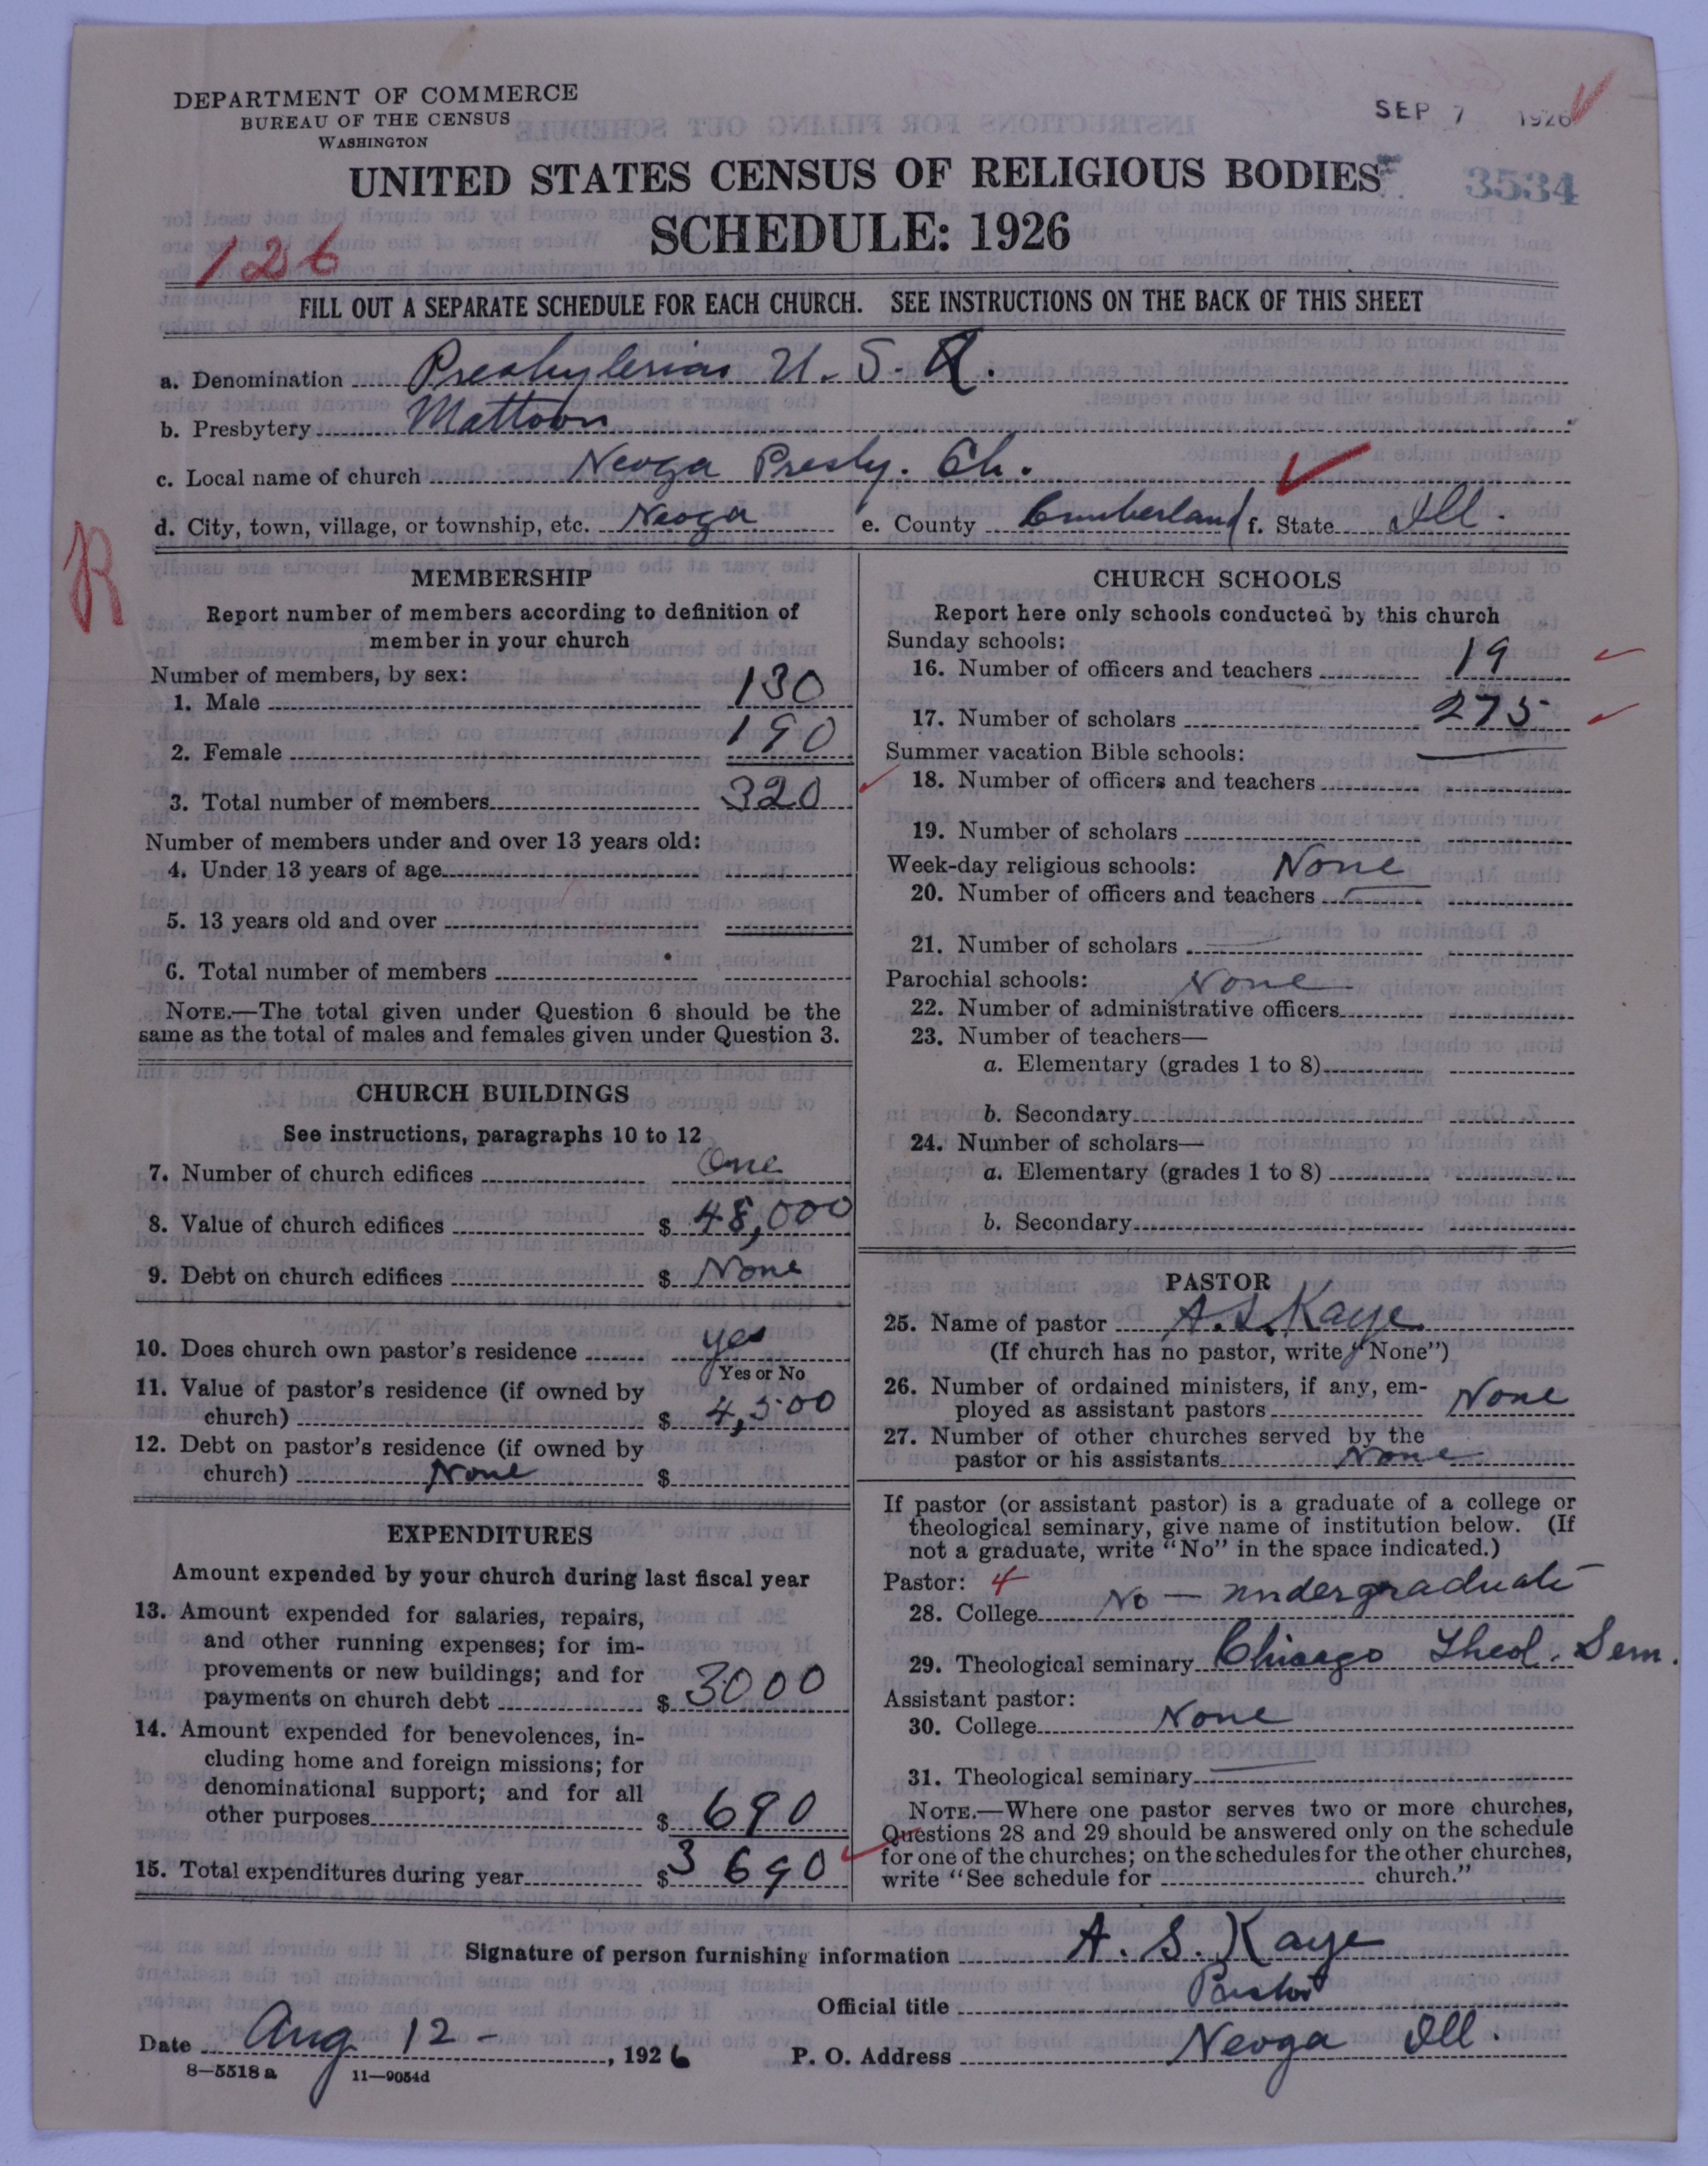 DEPARTMENT OF COMMERCE
BUREAU OF THE CENSUS
WASHINGTON
SEP 7 1926
UNITED STATES CENSUS OF RELIGIOUS BODIES
3534
SCHEDULE: 1926
126
FILL OUT A SEPARATE SCHEDULE FOR EACH CHURCH. SEE INSTRUCTIONS ON THE BACK OF THIS SHEET
a. Denomination Presbyterian U. S. A.
b. Presbytery Mattoon
c. Local name of church Neoga Presby. Ch.
d. City, town, village, or township, etc. Neoga e. County Cumberland f. State Ill.
R
MEMBERSHIP
Report number of members according to definition of
member in your church
Number of members, by sex:
1. Male 130
2. Female 190
3. Total number of members 320
Number of members under and over 13 years old:
4. Under 13 years of age
5. 13 years old and over
6. Total number of members
NOTE.—The total given under Question 6 should be the
same as the total of males and females given under Question 3.
CHURCH BUILDINGS
See instructions, paragraphs 10 to 12
7. Number of church edifices One
8. Value of church edifices $ 48,000
9. Debt on church edifices $ None
10. Does church own pastor's residence yes
Yes or No
11. Value of pastor's residence (if owned by
church) $ 4,500
12. Debt on pastor's residence (if owned by
church) None $
EXPENDITURES
Amount expended by your church during last fiscal year
13. Amount expended for salaries, repairs,
and other running expenses; for im-
provements or new buildings; and for
payments on church debt $ 3000
14. Amount expended for benevolences, in-
cluding home and foreign missions; for
denominational support; and for all
other purposes $ 690
15. Total expenditures during year $ 3690
CHURCH SCHOOLS
Report here only schools conducted by this church
Sunday schools:
16. Number of officers and teachers 19
17. Number of scholars 275
Summer vacation Bible schools:
18. Number of officers and teachers
19. Number of scholars
Week-day religious schools: None
20. Number of officers and teachers
21. Number of scholars
Parochial schools: None
22. Number of administrative officers
23. Number of teachers—
a. Elementary (grades 1 to 8)
b. Secondary
24. Number of scholars—
a. Elementary (grades 1 to 8)
b. Secondary
PASTOR
25. Name of pastor A. S. Kaye
(If church has no pastor, write "None")
26. Number of ordained ministers, if any, em-
ployed as assistant pastors None
27. Number of other churches served by the
pastor or his assistants None
If pastor (or assistant pastor) is a graduate of a college or
theological seminary, give name of institution below. (If
not a graduate, write "No" in the space indicated.)
Pastor: 4
28. College No — undergraduate
29. Theological seminary Chicago Theol. Sem.
Assistant pastor:
30. College None
31. Theological seminary
NOTE.—Where one pastor serves two or more churches,
Questions 28 and 29 should be answered only on the schedule
for one of the churches; on the schedules for the other churches,
write "See schedule for church."
Signature of person furnishing information A. S. Kaye
Official title Pastor
Date Aug 12 - , 1926 P. O. Address Neoga Ill.
8—5518 a 11—9054d